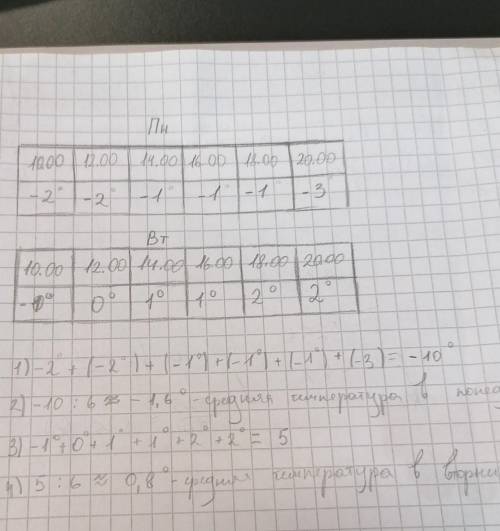 Пн
10.00 12.00 14.00 16.00 18.00 20.00
-2° -2° -1° -1° -1° -3
Вт
10.00 12.00 14.00 16.00 18.00 20.00
0° 1° 1° 2° 2°
1) -2° + (-2°) + (-1°) + (-1°) + (-1°) + (-3) = -10°
2) -10 : 6 ≈ -1,6° - средняя температура в
3) -1° + 0° + 1° + 1° + 2° + 2° = 5
4) 5 : 6 ≈ 0,8° - средняя температура в